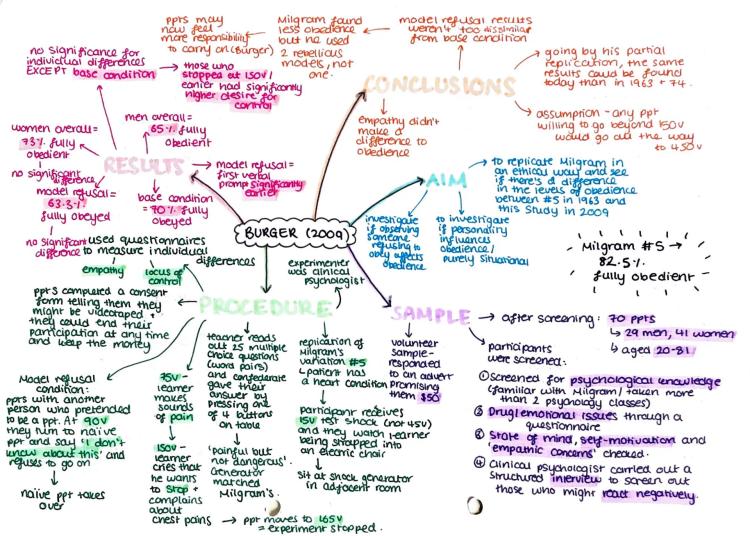 BURGER (2009)
CONCLUSIONS
model refusal results
weren't too dissimilar
from base condition
Milgram found
less obedience
but he used
2 rebellious
models, not
one.
ppts may
now feel
more responsibility
to carry on (Burger)
going by his partial
replication, the same
results could be found
today than in 1963 + 74.
assumption - any ppt
willing to go beyond 150v
would go all the way
to 450v
empathy didn't
make a
difference to
obedience
RESULTS
no significance for
individual differences
EXCEPT base condition
those who
stopped at 150v/
earlier had significantly
higher desire for
control
men overall=
65% fully
obedient
women overall=
73% fully
obedient
no significant
difference
model refusal=
63.3%
fully obeyed
no significant
difference
base condition
= 70% fully
obeyed
model refusal=
first verbal
prompt significantly
earlier
AIM
to replicate Milgram in
an ethical way and see
if there's a difference
in the levels of obedience
between #5 in 1963 and
this study in 2009
investigate
if observing
someone
refusing to
obey affects
obedience
to investigate
if personality
influences
obedience/
purely situational
Milgram #5 →
82.5%
fully obedient
PROCEDURE
used questionnaires
to measure individual
differences
empathy
locus of
control
experimenter
was clinical
psychologist
ppts completed a consent
form telling them they
might be videotaped +
they could end their
participation at any time
and keep the money
Model refusal
condition:
ppts with another
person who pretended
to be a ppt. At 90v
they turn to naïve
ppt and say 'I don't
know about this' and
refuses to go on
naïve ppt takes
over
75v -
learner
makes
sounds
of pain
150v -
learner
cries that
he wants
to stop +
complains
about
chest pains
ppt moves to 165v
= experiment stopped.
teacher reads
out 25 multiple
choice questions
(word pairs)
and confederate
gave their
answer by
pressing one
of 4 buttons
on table
'painful but
not dangerous'.
Generator
matched
Milgram's.
replication of
Milgram's
variation #5
↳ patient has
a heart condition
Participant receives
15v test shock (not 45v)
and they watch learner
being strapped into
an electric chair
Sit at shock generator
in adjacent room
SAMPLE
volunteer
sample -
responded
to an advert
promising
them $50
after screening: 70 ppts
↳ 29 men, 41 women
↳ aged 20-81
participants
were screened:
① Screened for psychological knowledge
(familiar with Milgram/taken more
than 2 psychology classes)
② Drug/emotional issues through a
questionnaire
③ State of mind, self-motivation and
'empathic concerns' checked.
④ Clinical psychologist carried out a
structured interview to screen out
those who might react negatively.